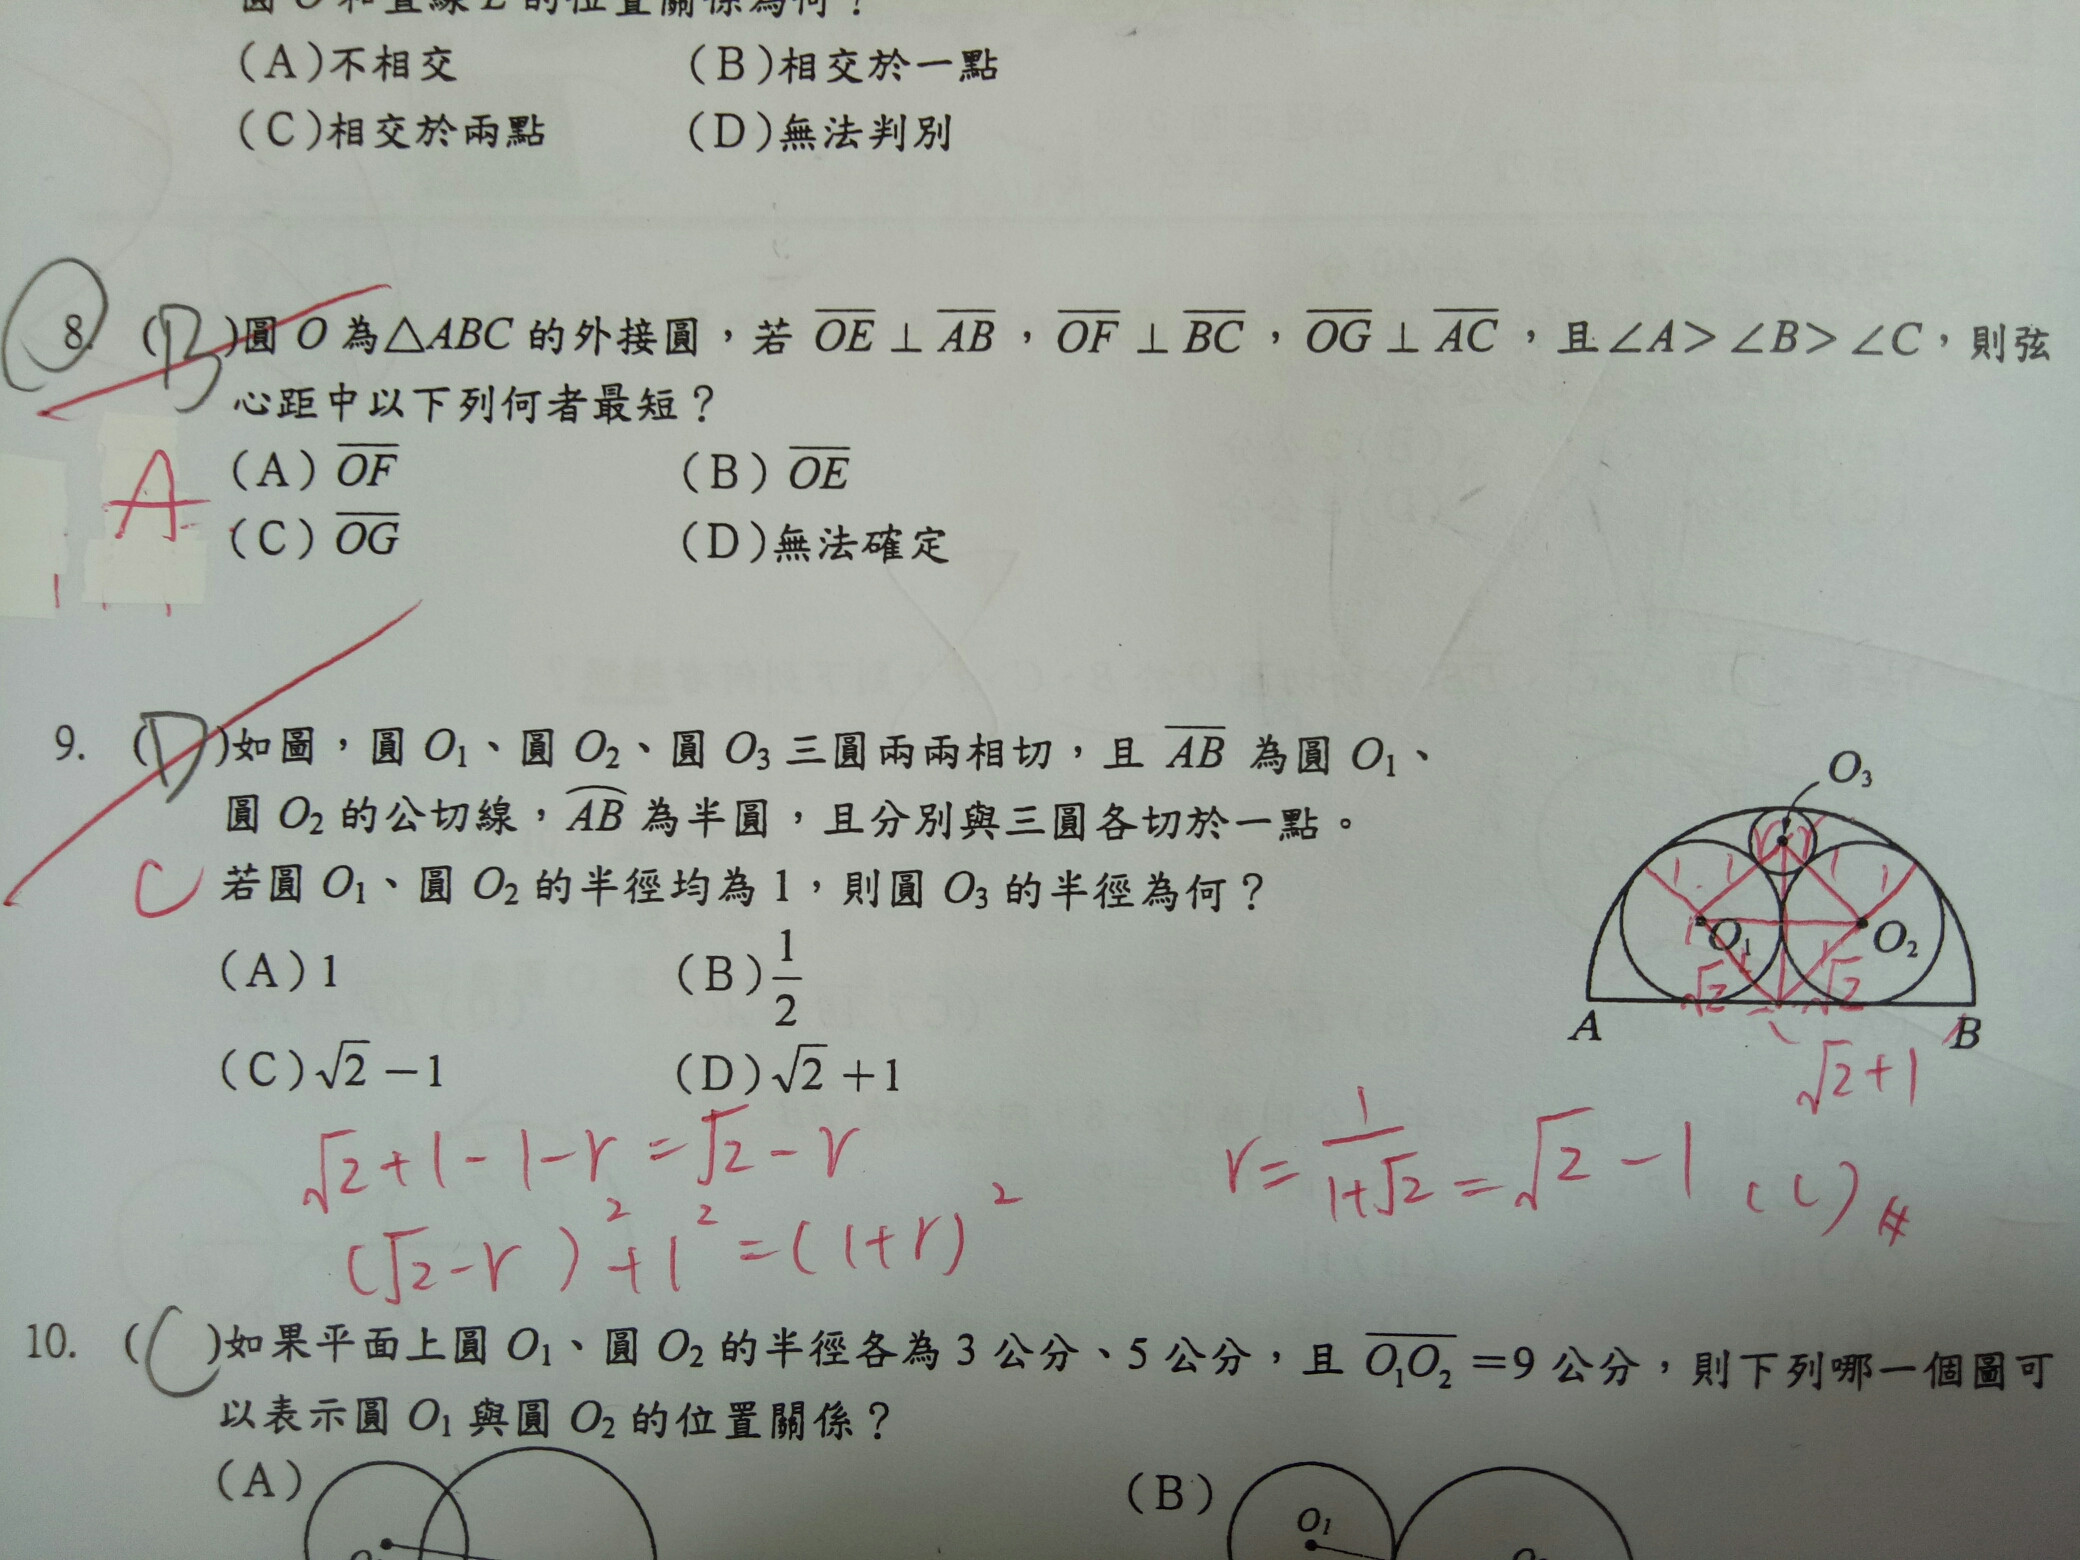 圓 O 和直線 L 的位置關係為何？
(A)不相交 (B)相交於一點
(C)相交於兩點 (D)無法判別
8. (B)圓 O 為△ABC 的外接圓，若 OE⊥AB，OF⊥BC，OG⊥AC，且∠A>∠B>∠C，則弦
心距中以下列何者最短？
(A) OF (B) OE
A
(C) OG (D)無法確定
9. (D)如圖，圓 O₁、圓 O₂、圓 O₃ 三圓兩兩相切，且 AB 為圓 O₁、
圓 O₂ 的公切線，AB 為半圓，且分別與三圓各切於一點。
C 若圓 O₁、圓 O₂ 的半徑均為 1，則圓 O₃ 的半徑為何？
(A)1 (B)1/2
(C)√2−1 (D)√2+1
O₃
1 1 r r 1 1
O₁ O₂
1 1 1
√2 √2
A B
√2+1
√2+1-1-r=√2-r
(√2-r)²+1²=(1+r)²
r=1/(1+√2)=√2-1 (C)#
10. (C)如果平面上圓 O₁、圓 O₂ 的半徑各為 3 公分、5 公分，且 O₁O₂=9 公分，則下列哪一個圖可
以表示圓 O₁ 與圓 O₂ 的位置關係？
(A) (B)
O₁